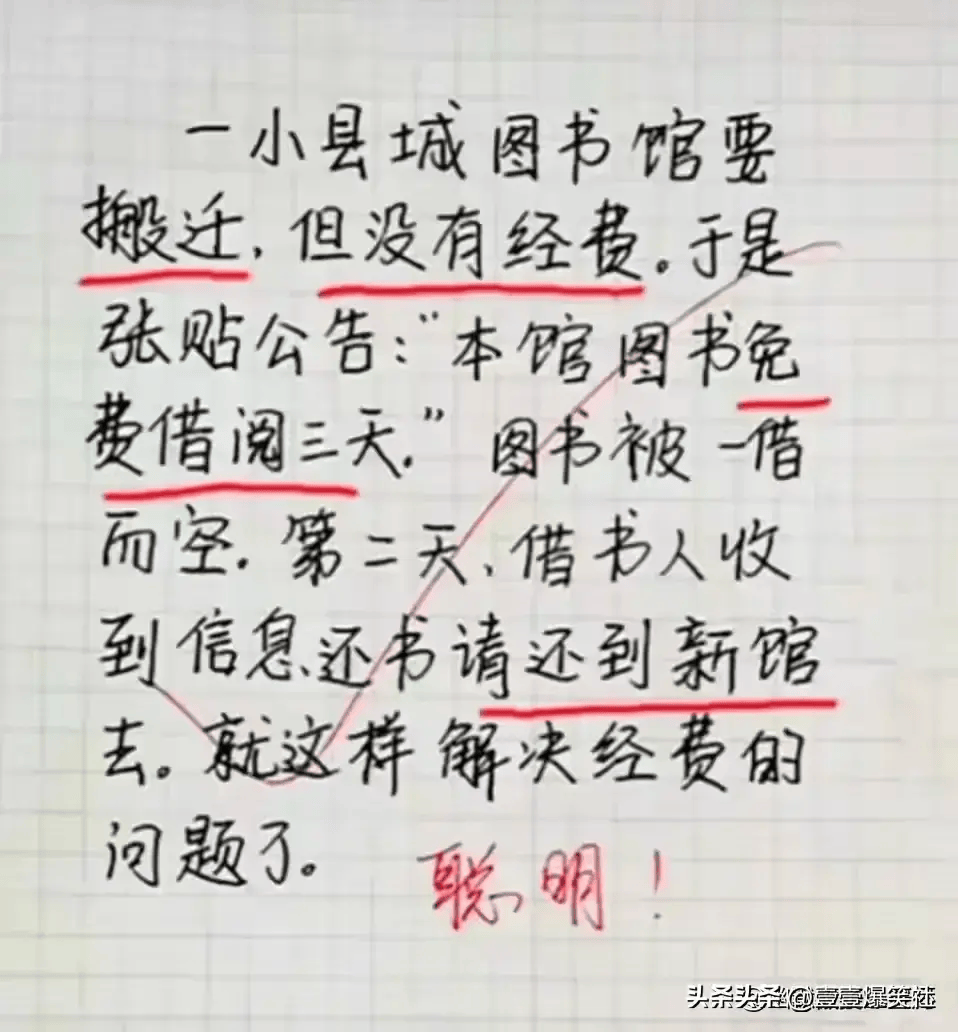 一小县城图书馆要
搬迁，但没有经费。于是
张贴公告：“本馆图书免
费借阅三天.”图书被一借
而空.第二天,借书人收
到信息还书请还到新馆
去。就这样解决经费的
问题了。
聪明！
头条头条@壹壹爆笑娃